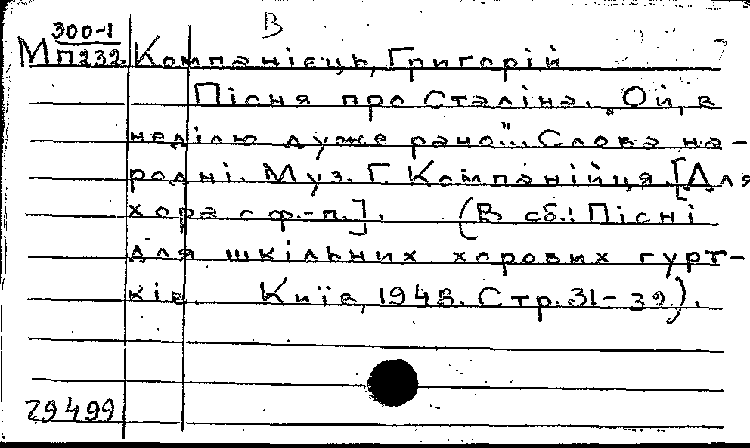 В
300-1
М П232 Компанієць, Григорій
Пісня про Сталіна. „Ой, в
неділю дуже рано"... Слова на-
родні. Муз. Г. Компанійця. [Для
хора с ф.-п.]. (В сб.: Пісні
для шкільних хорових гурт-
ків. Київ, 1948. Стр. 31-39).
29499